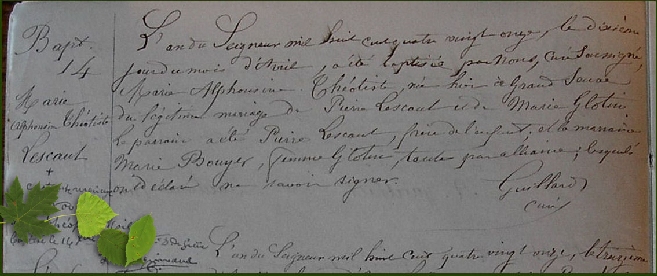 Bapt.
14
Marie
Alphonsine Théotiste
Lescaut
+
L'an du Seigneur mil huit cent quatre vingt onze, le dixième
jour du mois d'Avril, a été baptisée par Nous, curé soussigné,
Marie Alphonsine Théotiste née hier à Grand
du légitime mariage de Pierre Lescaut et de Marie Glotin
le parrain a été Pierre Lescaut, frère de l'enfant, et la marraine
Marie Bouyer, femme Glotin, tante par alliance; lesquels
ont déclaré ne savoir signer.
Guillard
curé
L'an du Seigneur mil huit cent quatre vingt onze, le treizième